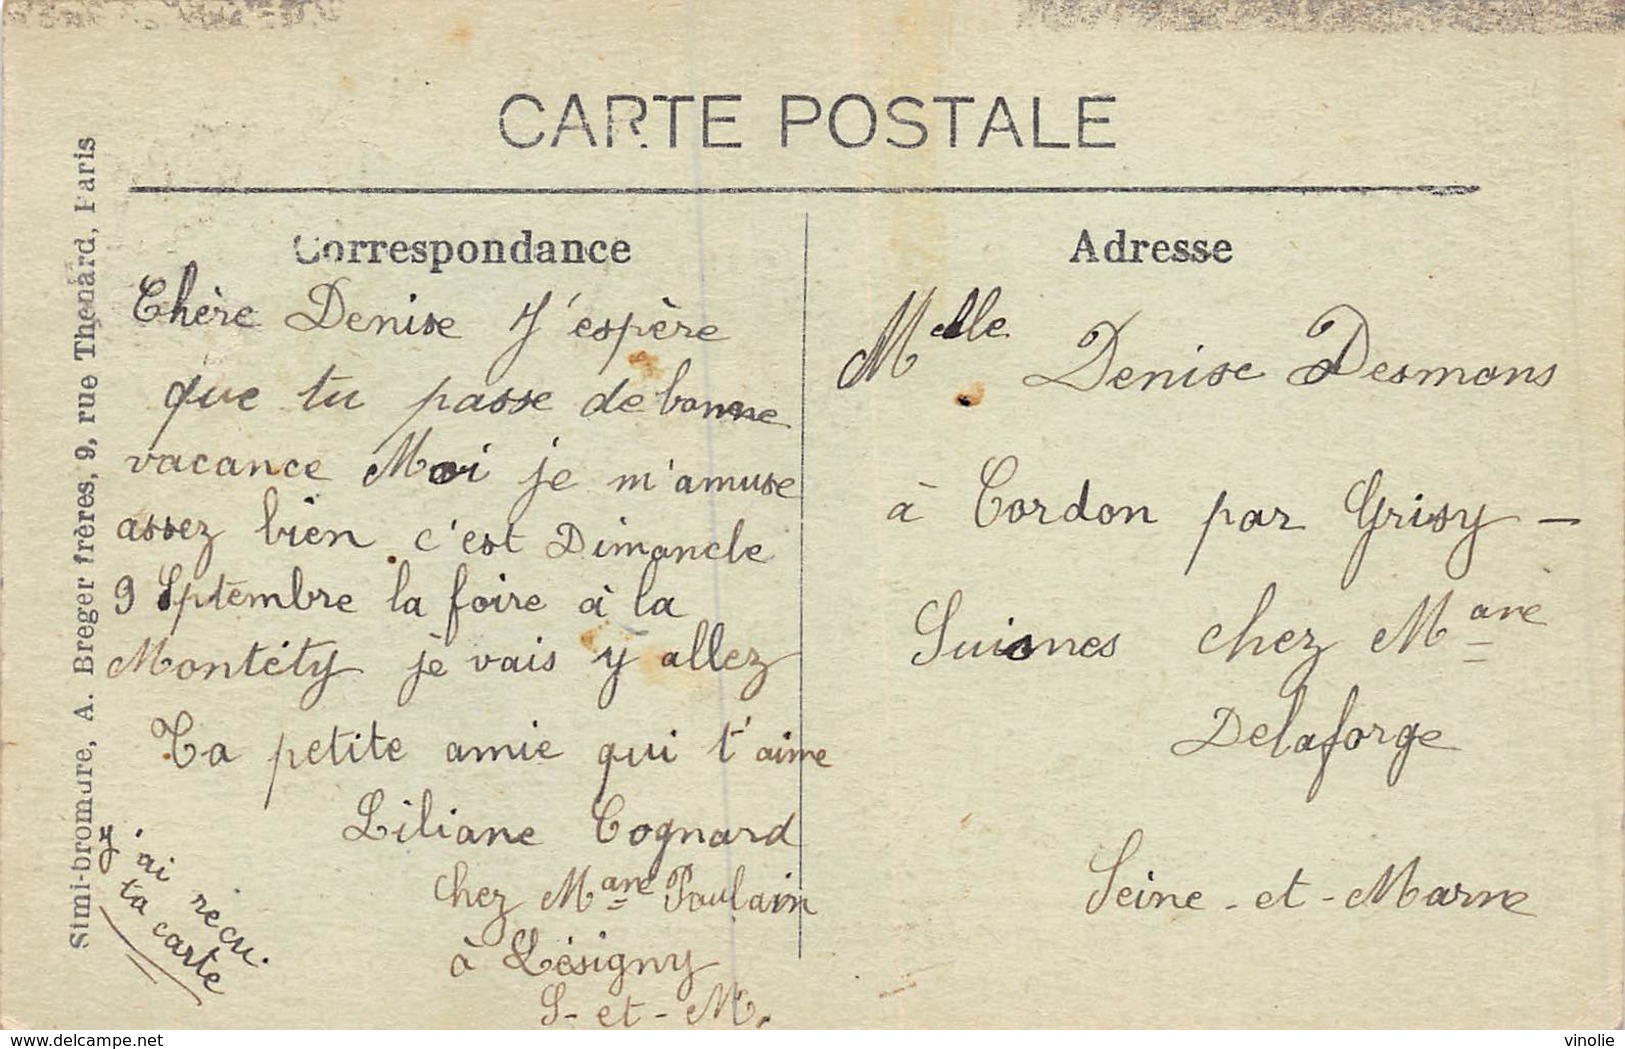 CARTE POSTALE
Correspondance
Chère Denise J'espère
que tu passe de bonne
vacance Moi je m'amuse
assez bien c'est Dimancle
9 Septembre la foire à la
Montéty je vais y allez
Ta petite amie qui t'aime
Liliane Cognard
chez Mame Poulain
à Lésigny
S-et-M.
J'ai récu.
ta carte
Adresse
Melle Denise Desmons
à Cordon par Grisy-
Suisnes chez Mame
Delaforge
Seine-et-Marne
Simi-bromure, A. Breger frères, 9, rue Thenard, Paris
www.delcampe.net
vinolie